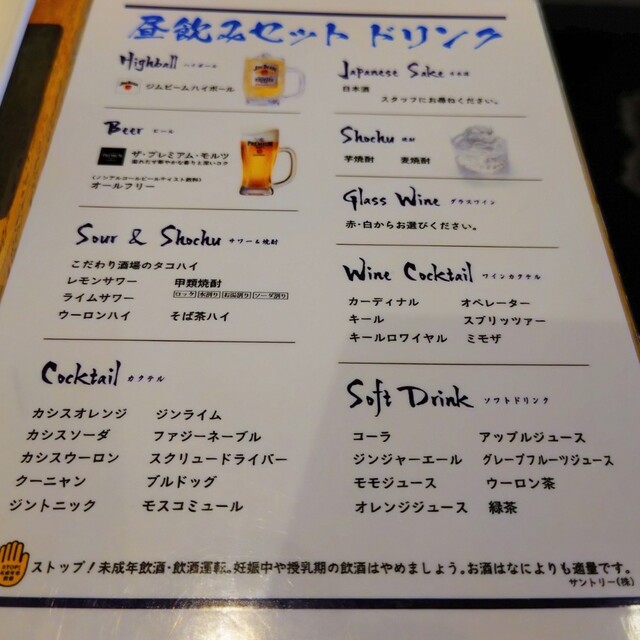 昼飲みセット ドリンク
Highball ハイボール
ジムビームハイボール
Beer ビール
ザ・プレミアム・モルツ
(ノンアルコールビールテイスト飲料)
オールフリー
Sour & Shochu サワー&焼酎
こだわり酒場のタコハイ
レモンサワー 甲類焼酎
ロック 水割り お湯割り ソーダ割り
ライムサワー
ウーロンハイ そば茶ハイ
Cocktail カクテル
カシスオレンジ ジンライム
カシスソーダ ファジーネーブル
カシスウーロン スクリュードライバー
クーニャン ブルドッグ
ジントニック モスコミュール
Japanese Sake 日本酒
日本酒
スタッフにお尋ねください。
Shochu 焼酎
芋焼酎 麦焼酎
Glass Wine グラスワイン
赤・白からお選びください。
Wine Cocktail ワインカクテル
カーディナル オペレーター
キール スプリッツァー
キールロワイヤル ミモザ
Soft Drink ソフトドリンク
コーラ アップルジュース
ジンジャーエール グレープフルーツジュース
モモジュース ウーロン茶
オレンジジュース 緑茶
ストップ!未成年飲酒・飲酒運転。妊娠中や授乳期の飲酒はやめましょう。お酒はなによりも適量です。
サントリー(株)